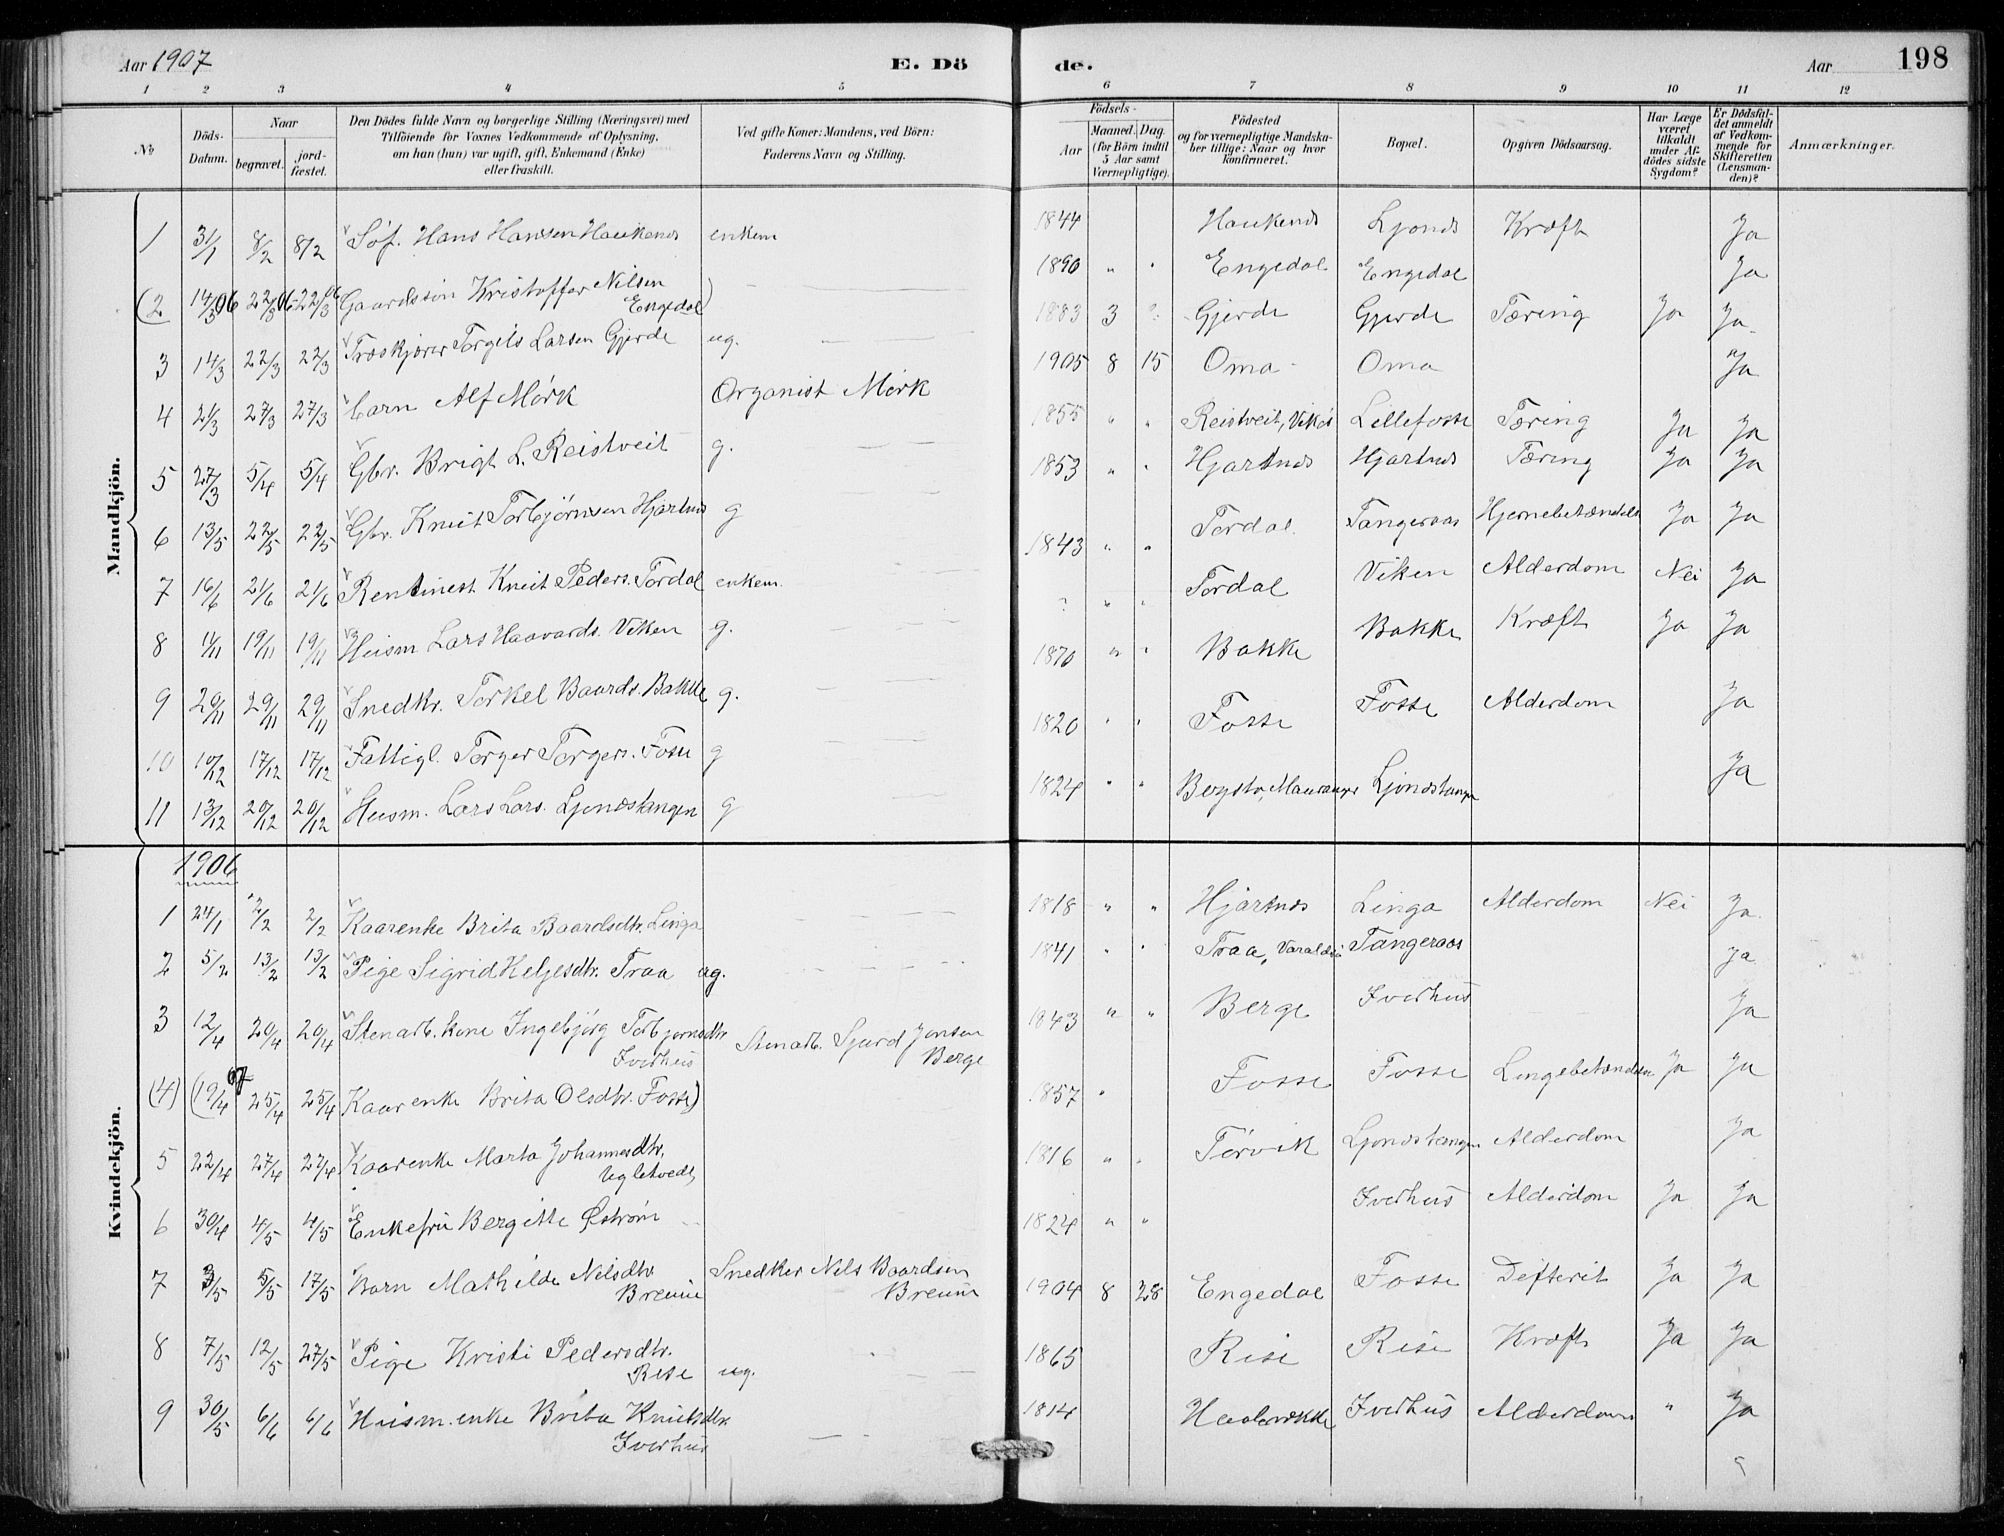 Aar 1907
E. Dö
de.
Aar
198
1 2 3 4 5 6 7 8 9 10 11 12
No
Döds-Datum.
Naar
begravet.
jord-fæstet.
Den Dödes fulde Navn og borgerlige Stilling (Næringsvei) med
Tilföiende for Voxnes Vedkommende af Oplysning,
om han (hun) var ugift, gift, Enkemand (Enke)
eller fraskilt.
Ved gifte Koner: Mandens, ved Börn:
Faderens Navn og Stilling.
Födsels-
Aar
Maaned. Dag.
(for Börn indtil
5 Aar samt
Værnepligtige).
Födested
og for værnepligtige Mandska-
ber tillige: Naar og hvor
konfirmeret.
Bopæl.
Opgiven Dödsaarsag.
Har Læge
været
tilkaldt
under Af-
dödes sidste
Sygdom?
Er Dödsfal-
det anmeldt
af Vedkom-
mende for
Skifteretten
(Lensman-
den)?
Anmærkninger.
Mandkjön.
1 31/1 8/2 8/2 Søf. Hans Hansen Haukenes enkem 1844 Haukenes Ljones Kræft Ja
(2 14/3 06 22/3 06 22/3 06 Gaardssøn Kristoffer Nilsen
Engedal) 1890 " " Engedal Engedal Ja
3 14/3 22/3 22/3 Træskjærer Torgils Larsen Gjerde ug. 1883 3 Gjerde Gjerde Tæring Ja Ja
4 21/3 27/3 27/3 Barn Alf Mørk Organist Mørk 1905 8 15 Oma Oma Ja
5 27/3 5/4 5/4 Gbr. Brigt L. Reistveit g. 1855 " " Reistveit, Vikør Lillefosse Tæring Ja Ja
6 13/5 22/5 22/5 Gbr. Knut Torbjørnsen Hjartnes g 1853 " " Hjartnes Hjartnes Tæring Ja Ja
7 16/6 21/6 21/6 Rentenest Knut Peders. Tordal enkem. 1843 " " Tordal Tangeraas Hjernebetændels Ja Ja
8 11/11 19/11 19/11 Husm Lars Haavards. Viken g. ? " " Tordal Viken Alderdom Nei Ja
9 20/11 29/11 29/11 Snedkr. Torkel Baards. Bakke g. 1870 " " Bakke Bakke Kræft Ja Ja
10 10/12 17/12 17/12 Fattigl. Torger Torgers. Fosse g 1820 " " Fosse Fosse Alderdom Ja
11 13/12 20/12 20/12 Husm. Lars Lars. Ljonestangen g 1824 " " Bergstø, Mauranger Ljonestangen Ja
Kvindekjön.
1906
1 24/1 2/2 2/2 Kaarenke Brita Baardsdtr. Linga 1818 " " Hjartnes Linga Alderdom Nei Ja
2 5/2 13/2 13/2 Pige Sigrid Heljesdtr. Traa ug. 1841 " " Traa, Varaldsø Tangeraas Ja
3 12/4 20/4 20/4 Stenarb. kone Ingebjørg Torbjørnsdtr.
Iverhus Stenarb. Sjurd Jonsen
Berge 1843 " " Berge Iverhus Ja
(4) (19/4 07 25/4 25/4 Kaarenke Brita Olsdtr. Fosse) 1857 " Fosse Fosse Lungebetændelse Ja Ja
5 22/4 27/4 27/4 Kaarenke Marta Johannesdtr.
Ugletvedt 1816 " " Tørvik Ljonestangen Alderdom Ja
6 30/4 4/5 4/5 Enkefru Bergitte Østrøm 1824 " " Iverhus Alderdom Ja Ja
7 3/5 5/5 17/5 Barn Mathilde Nelsdtr
Breum Snedker Nels Baardsen
Breum 1904 8 28 Engedal Fosse Difterit Ja Ja
8 7/5 12/5 27/5 Pige Kristi Pedersdtr.
Rise ug. 1865 Rise Rise Kræft Ja Ja
9 30/5 6/6 6/6 Husm. enke Brita Knutsdtr.
Iverhus 1814 Iverhus Alderdom " Ja